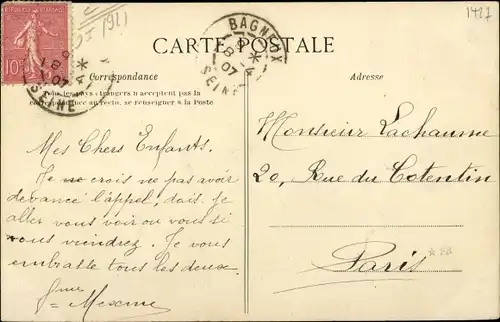 1921
1427
RÉPUBLIQUE FRANÇAISE
10c
8 4
07
SEINE
BAGNEUX
8 - 4
07
SEINE
CARTE POSTALE
Correspondance
Adresse
Tous les pays étrangers n'acceptent pas la
correspondance au recto, se renseigner à la Poste
Mes Chers Enfants.
Je ne crois ne pas avoir
devancé l'appel, dois-je
aller vous voir ou vous si
vous viendrez. Je vous
embrasse tous les deux.
Monsieur Lachaume
20, Rue du Cotentin
Paris